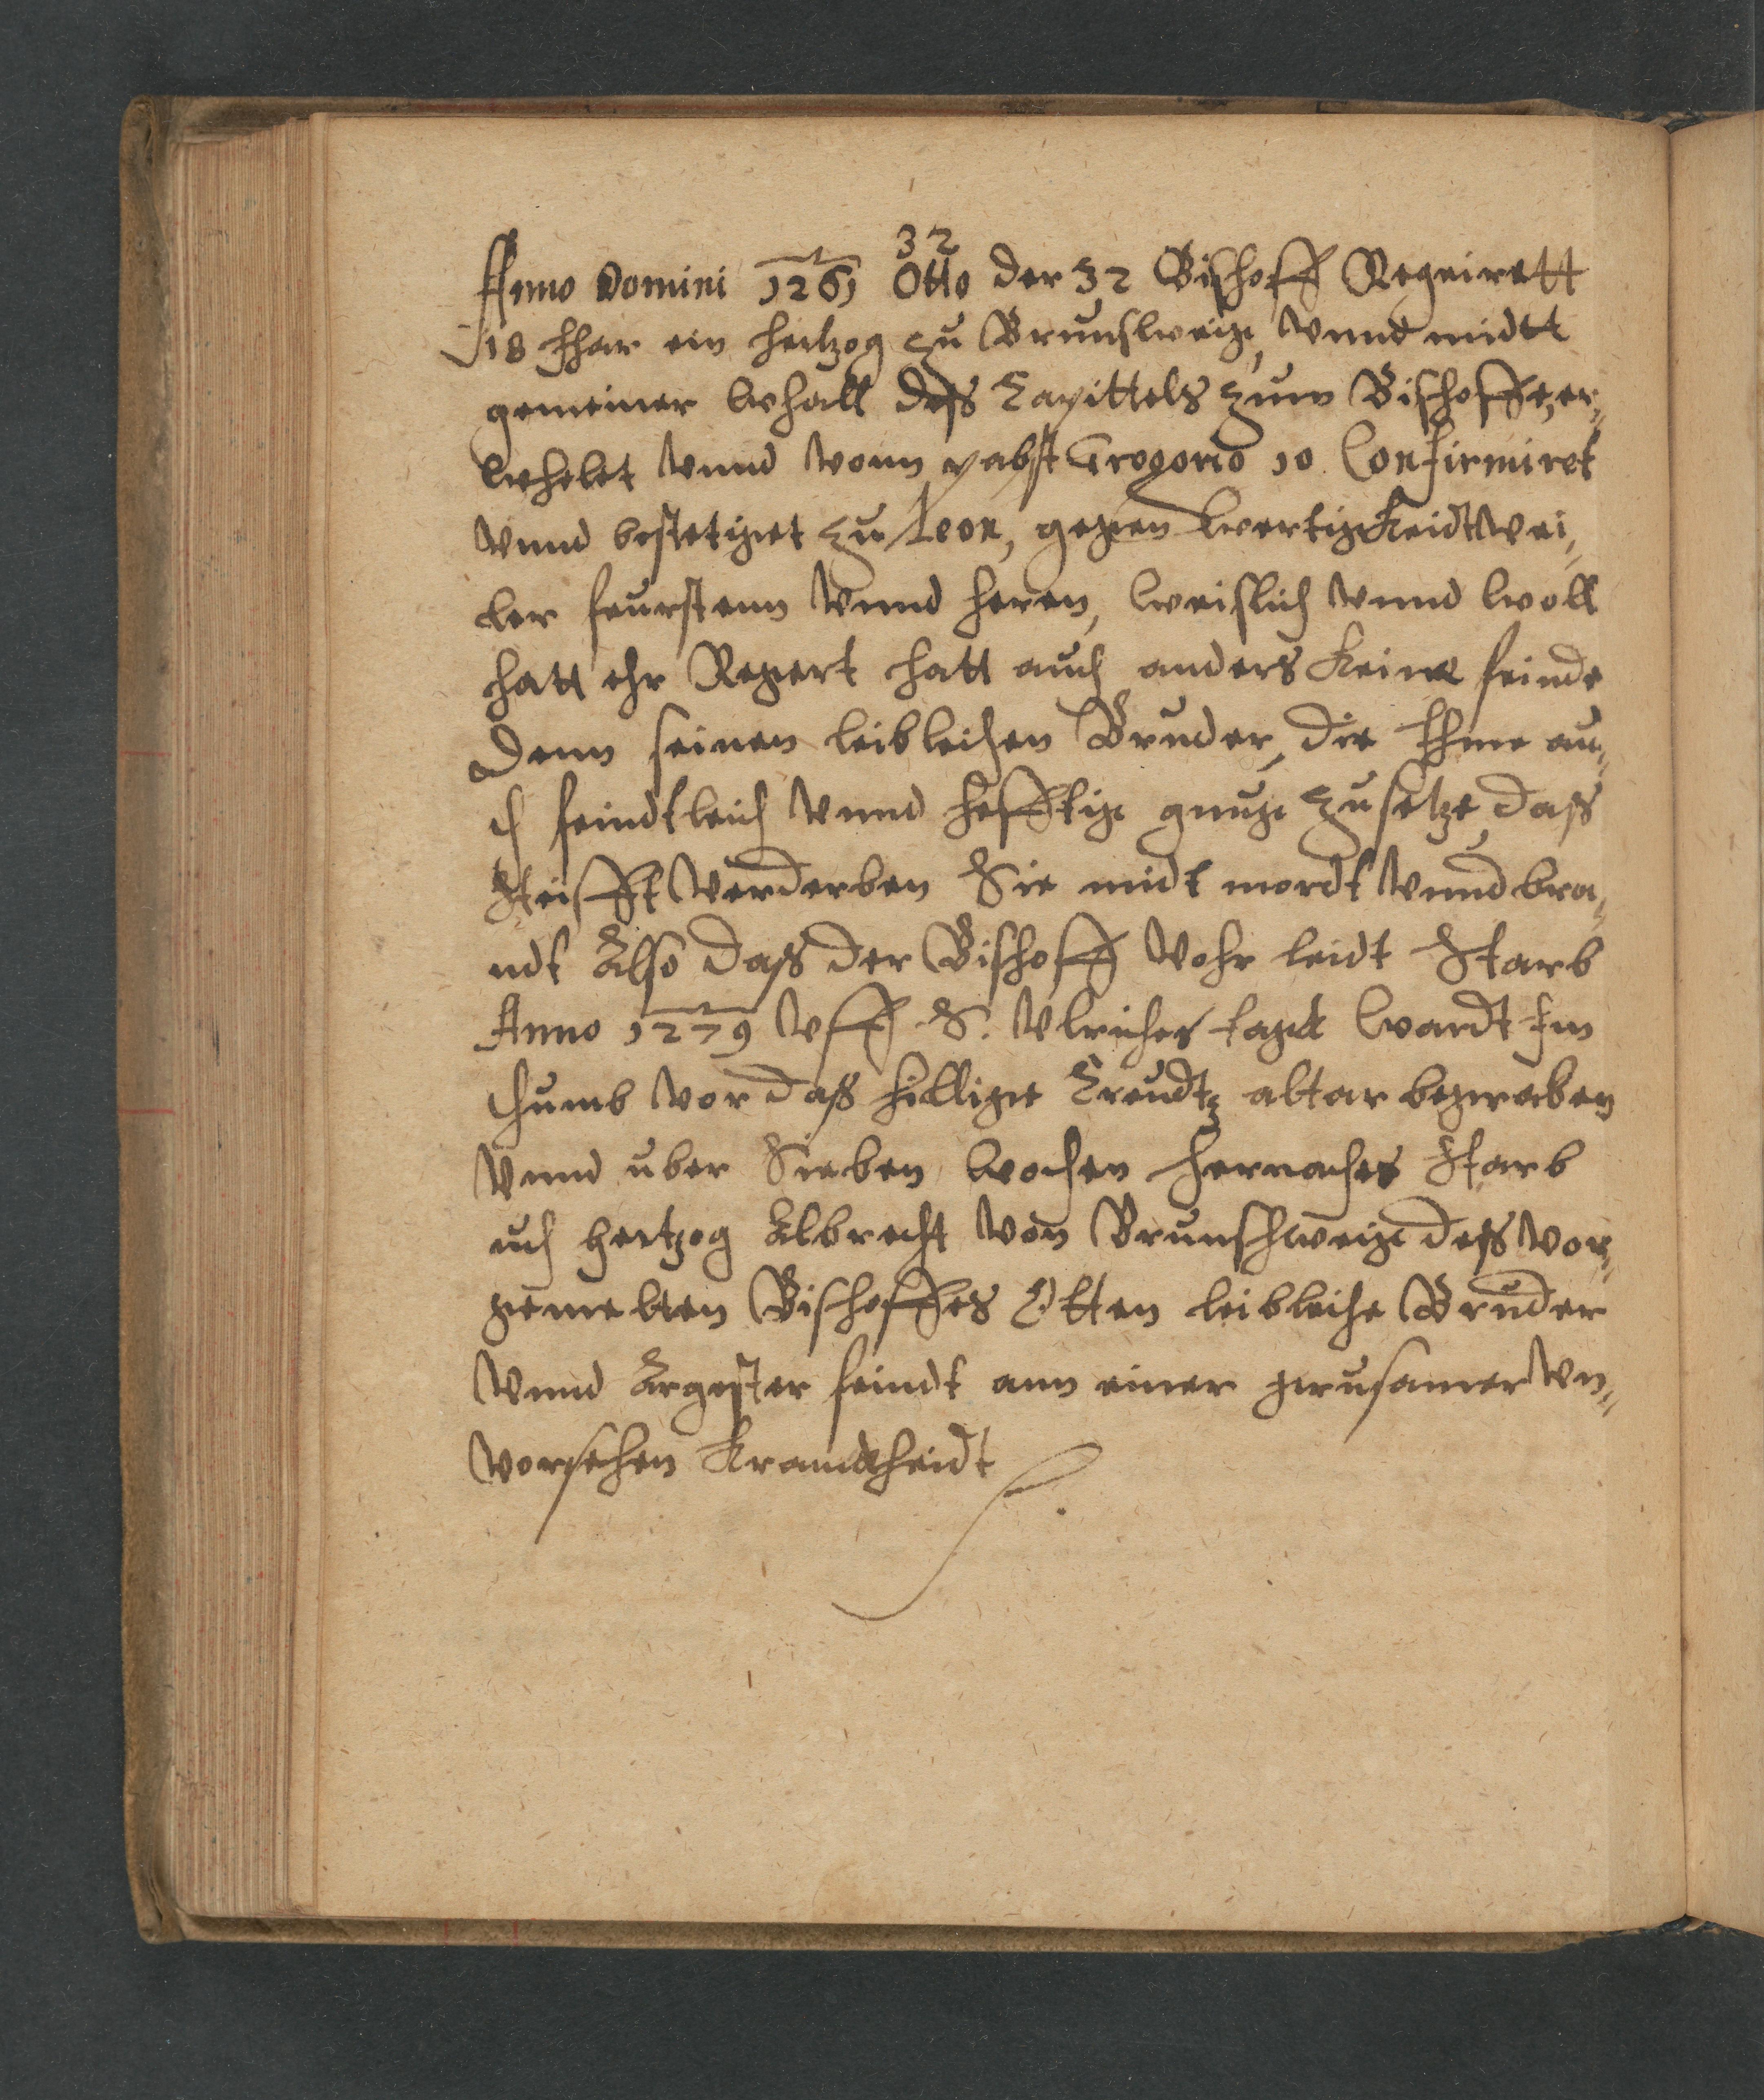 32
Anno Domini 1261 Otto der 32 Bischoff Regeirett
18 Jhar ein hertzog zu Brunslweige, Vnnd midtt
gemeiner wehall deß Capittels zum Bischoffe, er„
wehelet Vnnd vonn pabst Gregorio 10. Confirmiret
Vnnd bestetiget zu Leon, gegenwertigkeidt Vei„
ler feurstenn Vnnd heren, weislich Vnnd woll
hatt ehr Regert hatt auch anders keine feinde
Denn seinen leibleichen Bruder, die Ihme au„
ch feindtleich Vnnd hefftige gnuge zusetze, daß
Steifft Verderben Sie midt mordt Vnnd bra„
ndt Also daß der Bischoff Vohr leidt Starb
Anno 1279 Vff S. Vlriches tagk wardt Im
thumb vor daß hillige Creudtz altar begraben
Vnnd uber Sieben wochen hernaches Starb
uch hertzog Albrecht Von Brunschweige deß Vor„
gemelten Bischoffes Otten leibleiche Bruder
Vnnd Ärgester feindt ann einer grusamer Vn„
vorsehen Kranckheidt